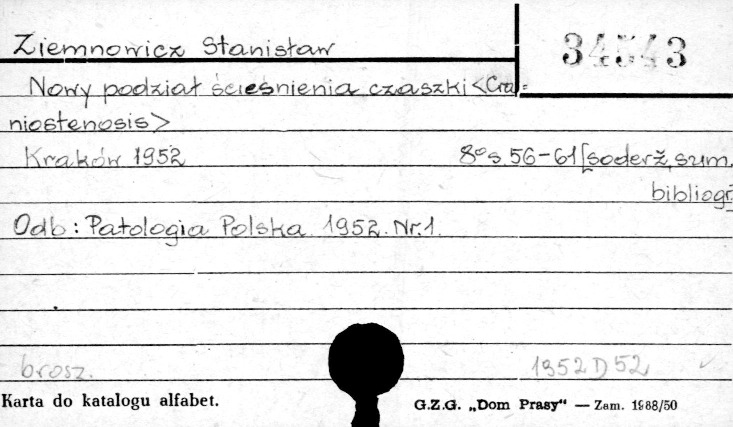 Ziemnowicz Stanisław
34543
Nowy podział ścieśnienia czaszki <Cra=
niostenosis>
Kraków 1952 8° s. 56-61 [soderž, sum.
bibliogr.
Odb: Patologia Polska. 1952. Nr. 1.
brosz. 1952 D 52
Karta do katalogu alfabet. G.Z.G. „Dom Prasy“ — Zam. 1988/50